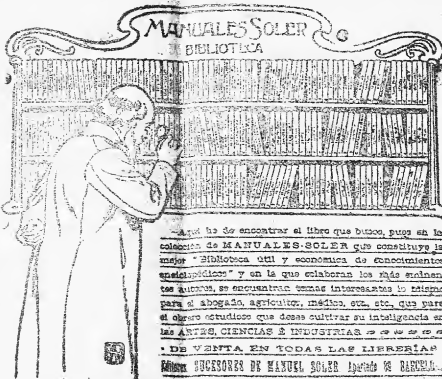 MANUALES SOLER
BIBLIOTECA
—Aquí he de encontrar el libro que busco, pues en la
colección de MANUALES-SOLER que constituye la
mejor "Biblioteca útil y económica de conocimientos
enciclopédicos" y en la que colaboran los más eminen-
tes autores, se encuentran temas interesantes lo mismo
para el abogado, agricultor, médico, etc., etc., que para
el obrero estudioso que desee cultivar su inteligencia en
las ARTES, CIENCIAS É INDUSTRIAS
DE VENTA EN TODAS LAS LIBRERÍAS
SUCESORES DE MANUEL SOLER Apartado BARCELONA